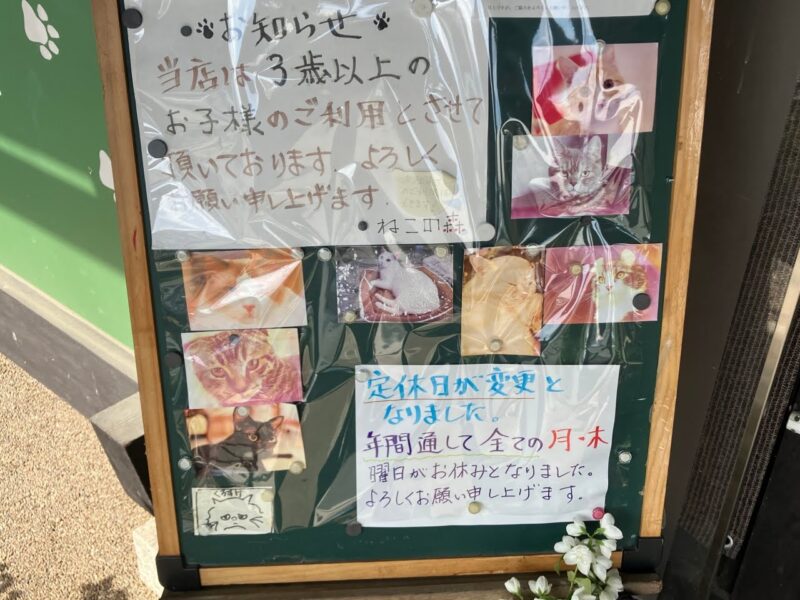 お知らせ
当店は3歳以上の
お子様のご利用とさせて
頂いております。よろしく
お願い申し上げます。
ねこの森
定休日が変更と
なりました。
年間通して全ての月・木
曜日がお休みとなりました。
よろしくお願い申し上げます。